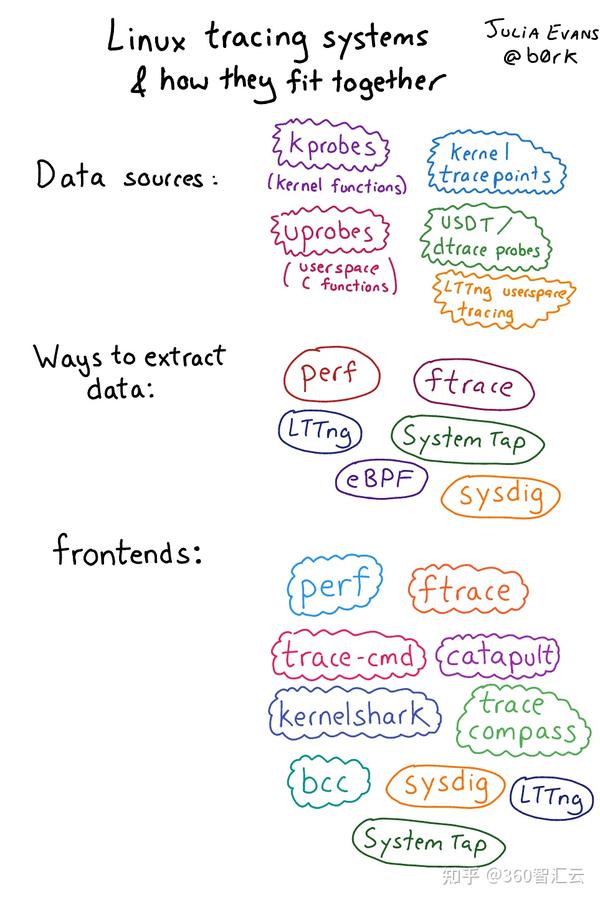 Linux tracing systems
& how they fit together
JULIA EVANS
@b0rk
Data sources:
kprobes
(kernel functions)
kernel
tracepoints
uprobes
(userspace
C functions)
USDT/
dtrace probes
LTTng userspace
tracing
Ways to extract
data:
perf
ftrace
LTTng
System Tap
eBPF
sysdig
frontends:
perf
ftrace
trace-cmd
catapult
kernelshark
trace
compass
bcc
sysdig
LTTng
System Tap
知乎 @360智汇云